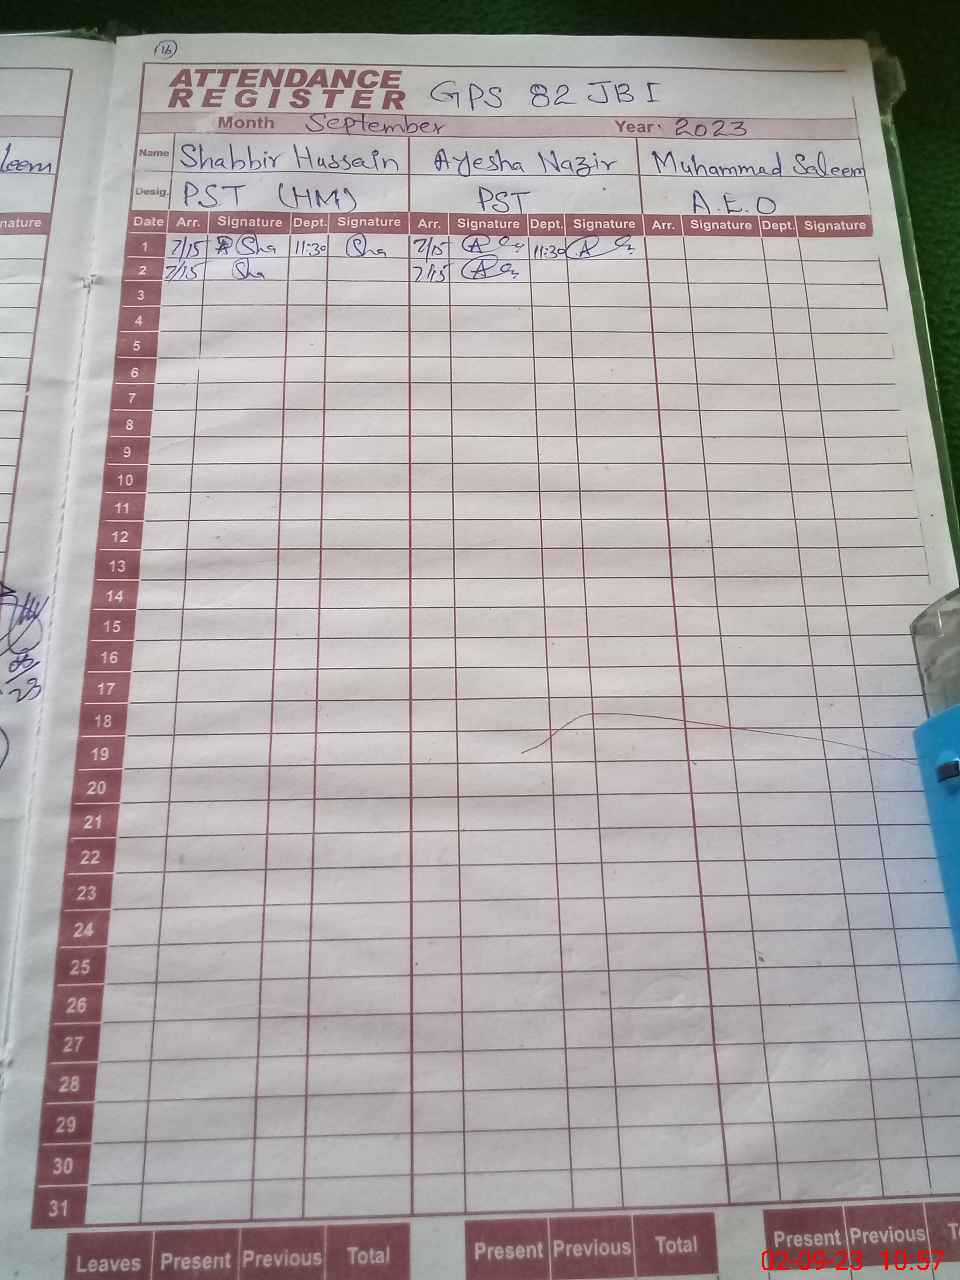 16
ATTENDANCE
REGISTER GPS 82 JBI
Month September Year: 2023
Name Shabbir Hussain Ayesha Nazir Muhammad Saleem
Desig. PST (HM) PST A.E.O
Date Arr. Signature Dept. Signature Arr. Signature Dept. Signature Arr. Signature Dept. Signature
1 7/15 Sha 11:30 Sha 7/15 11:30
2 7/15 Sha 7/15
3
4
5
6
7
8
9
10
11
12
13
14
15
16
17
18
19
20
21
22
23
24
25
26
27
28
29
30
31
Leaves Present Previous Total Present Previous Total Present Previous
leem
nature
08
23
02-09-23 10:57